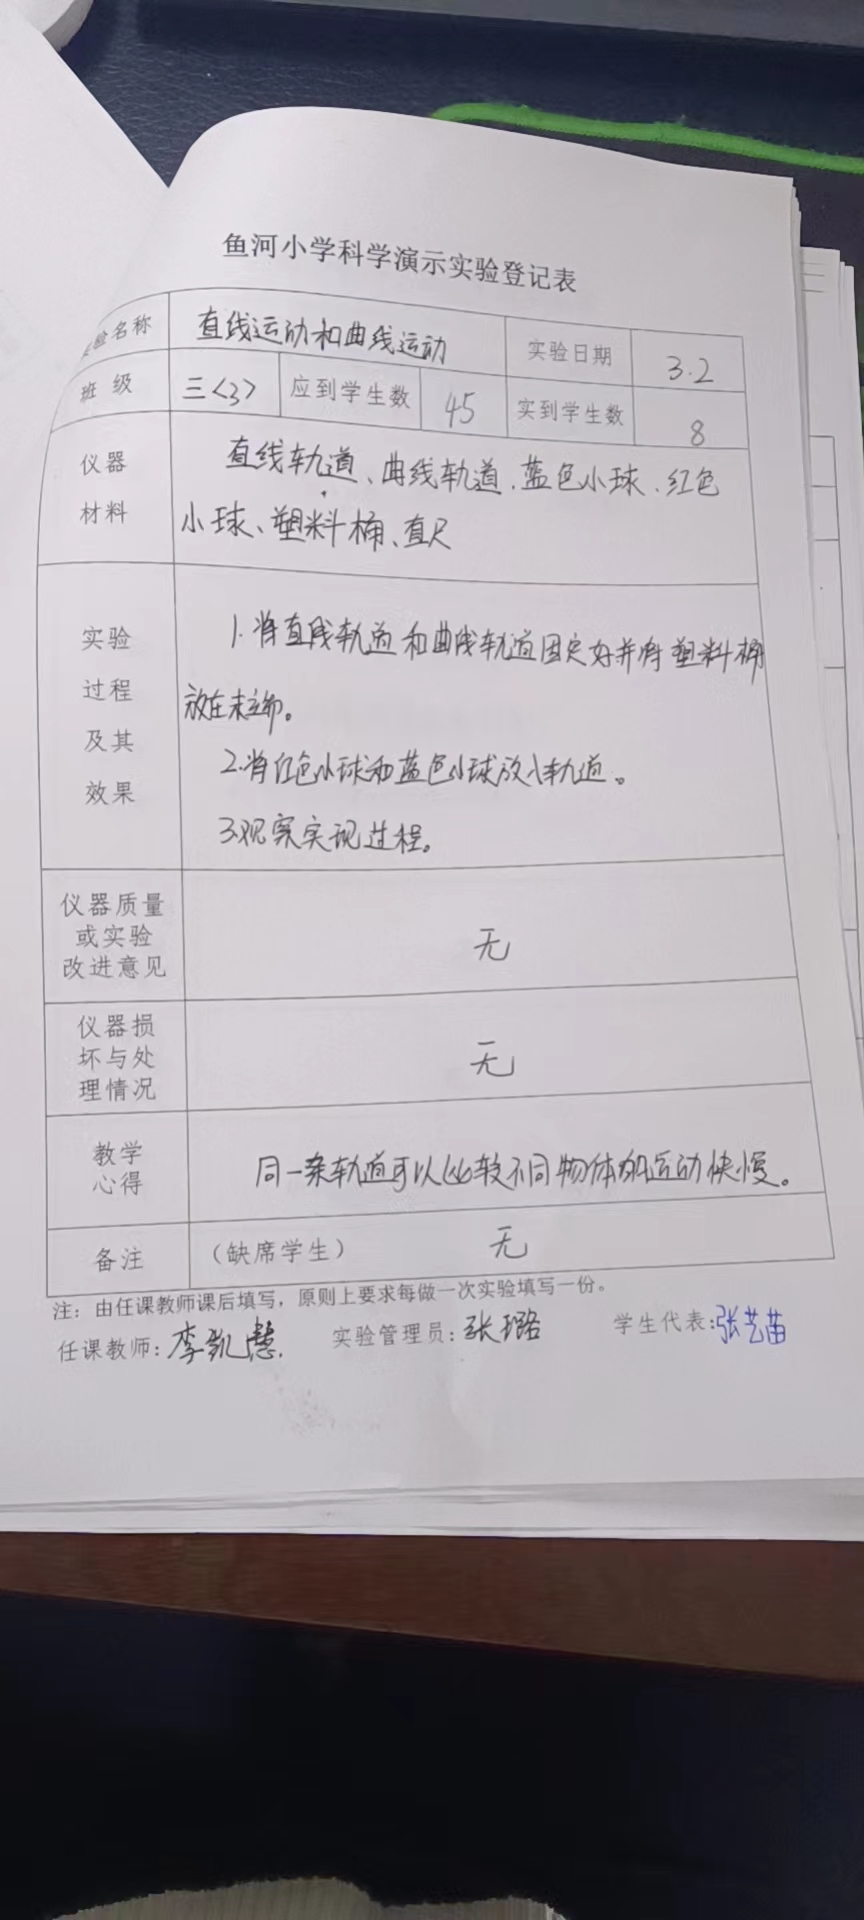 鱼河小学科学演示实验登记表
实验名称 直线运动和曲线运动 实验日期 3.2
班级 三<3> 应到学生数 45 实到学生数 8
仪器材料 直线轨道、曲线轨道、蓝色小球、红色
小球、塑料桶、直尺
实验过程及其效果 1.将直线轨道和曲线轨道固定好并将塑料桶
放在末端。
2.将红色小球和蓝色小球放入轨道。
3.观察实现过程。
仪器质量或实验改进意见 无
仪器损坏与处理情况 无
教学心得 同一条轨道可以比较不同物体的运动快慢。
备注 （缺席学生） 无
注：由任课教师课后填写，原则上要求每做一次实验填写一份。
任课教师：李凯慧 实验管理员：张璐 学生代表：张艺苗